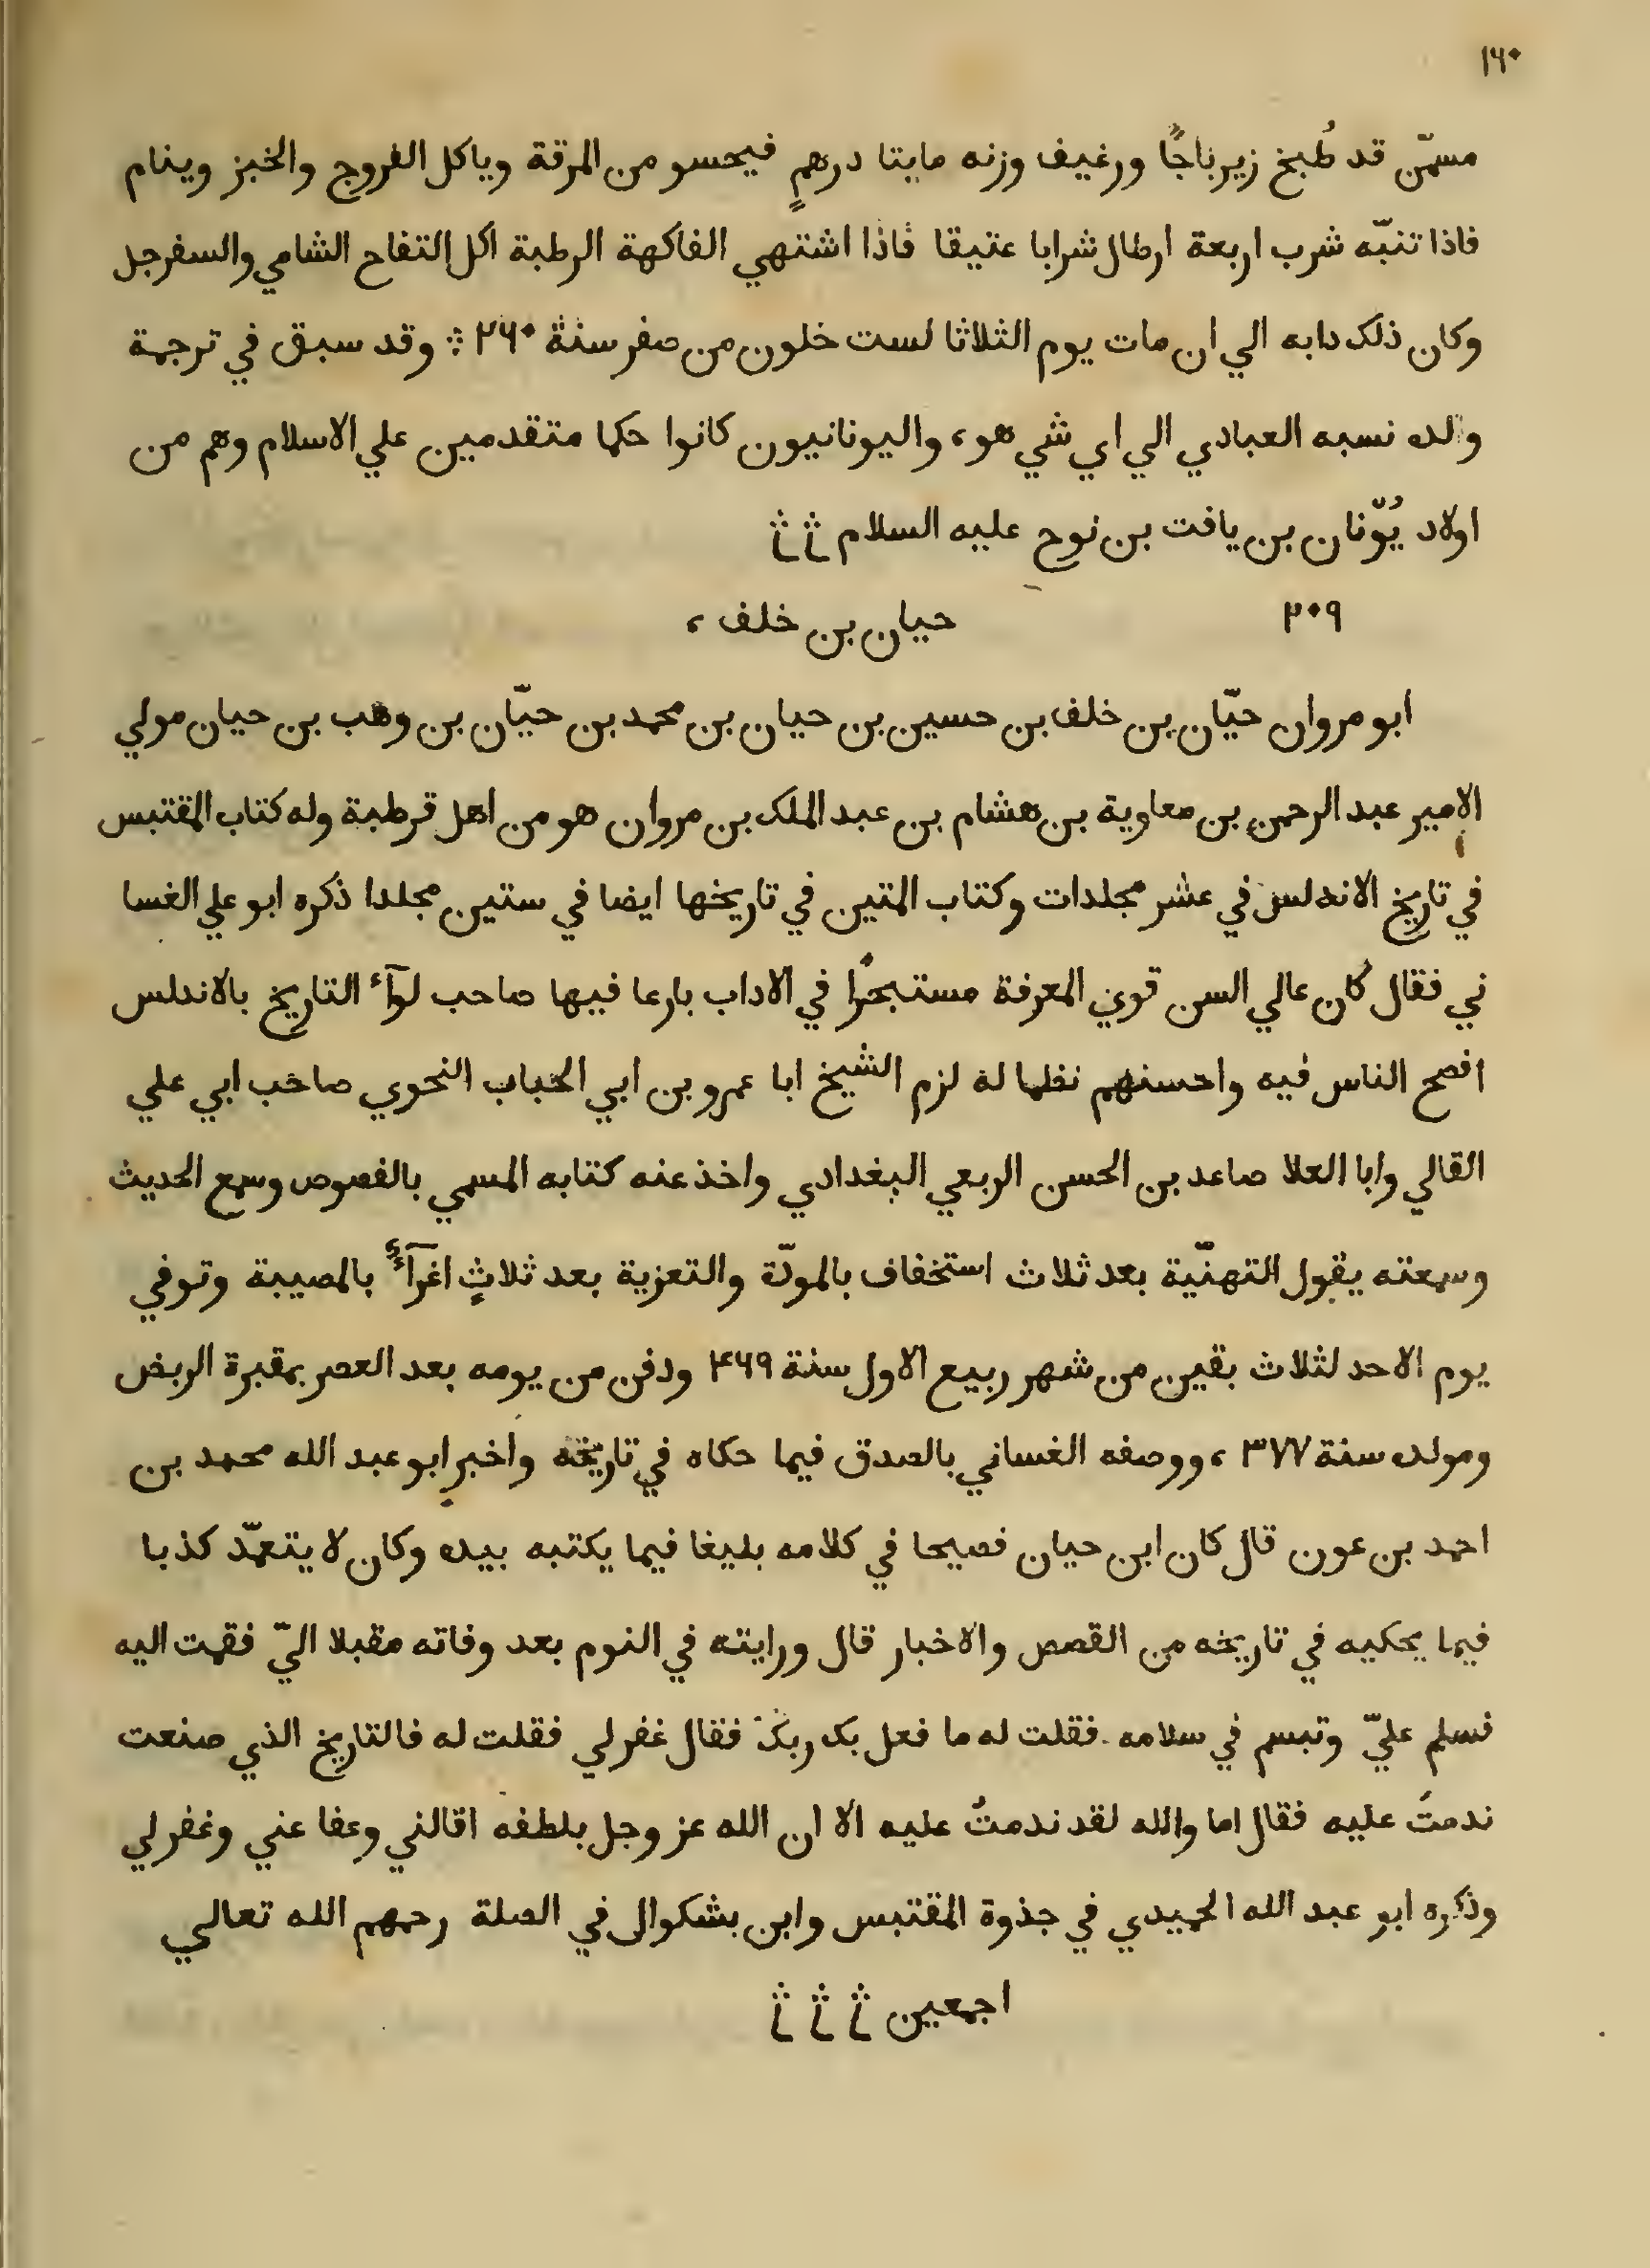 ١٦٠
مسمّن قد طُبخ زيرباجًا ورغيف وزنه مايتا درهمٍ فيحسو من المرقة وياكل الفروج والخبز وينام
فاذا تنبّه شرب اربعة ارطال شرابا عتيقا فاذا اشتهي الفاكهة الرطبة اكل التفاح الشامي والسفرجل
وكان ذلك دابه الي ان مات يوم الثلاثا لست خلون من صفر سنة ٢٦٠ وقد سبق في ترجمة
والده نسبه العبادي الي اي شي هو، واليونانيون كانوا حكما متقدمين علي الاسلام وهم من
اولاد يُوّنان بن يافت بن نوح عليه السلام
٢٠٩ حيان بن خلف ،
ابو مروان حيّان بن خلف بن حسين بن حيان بن محمد بن حيّان بن وهب بن حيان مولي
الامير عبد الرحمن بن معاوية بن هشام بن عبد الملك بن مروان هو من اهل قرطبة وله كتاب المقتبس
في تاريخ الاندلس في عشر مجلدات وكتاب المتين في تاريخها ايضا في ستين مجلدا ذكره ابو علي الغسا
ني فقال كان عالي السن قوي المعرفة مستبحرًا في الاداب بارعا فيها صاحب لوآء التاريخ بالاندلس
افصح الناس فيه واحسنهم نظما له لزم الشيخ ابا عمرو بن ابي الحباب النحوي صاحب ابي علي
القالي وابا العلا صاعد بن الحسن الربعي البغدادي واخذ عنه كتابه المسمي بالفصوص وسمع الحديث
وسمعته يقول التهنّية بعد ثلاث استخفاف بالمودّة والتعزية بعد ثلاثٍ اغرآءٌ بالمصيبة وتوفي
يوم الاحد لثلاث بقين من شهر ربيع الاول سنة ٤٦٩ ودفن من يومه بعد العصر بمقبرة الربض
ومولده سنة ٣٧٧ ، ووصفه الغساني بالصدق فيما حكاه في تاريخه واخبر ابو عبد الله محمد بن
احمد بن عون قال كان ابن حيان فصيحا في كلامه بليغا فيما يكتبه بيده وكان لا يتعمّد كذبا
فيما يحكيه في تاريخه من القصص والاخبار قال ورايته في النوم بعد وفاته مقبلا اليّ فقمت اليه
فسلم عليّ وتبسم في سلامه فقلت له ما فعل بك ربك فقال غفر لي فقلت له فالتاريخ الذي صنعت
ندمتَ عليه فقال اما والله لقد ندمتُ عليه الا ان الله عز وجل بلطفه اقالني وعفا عني وغفر لي
وذكره ابو عبد الله الحميدي في جذوة المقتبس وابن بشكوال في الصلة رحمهم الله تعالي
اجمعين